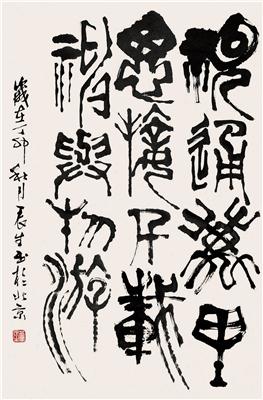 視通萬里
思接千載
神與物游
歲在丁卯秋月辰生書於北京